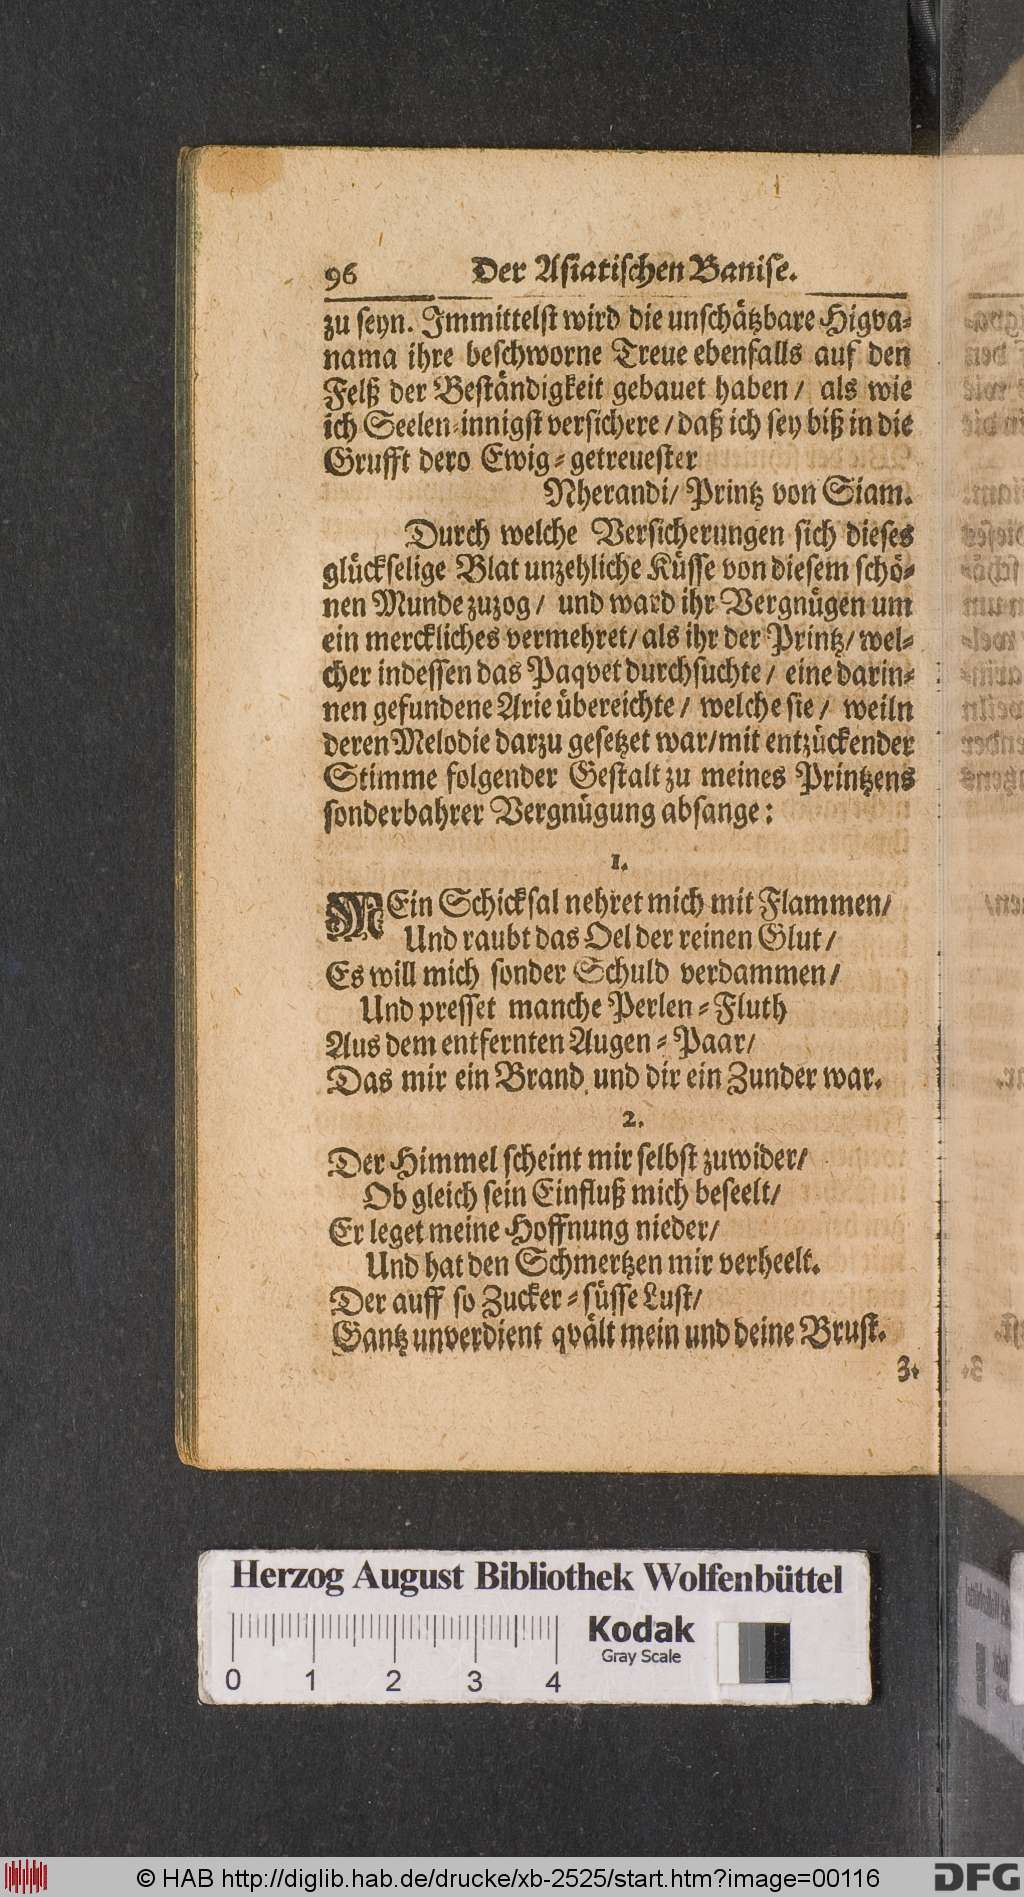 96 Der Asiatischen Banise.
zu seyn. Immittelst wird die unschätzbare Higva-
nama ihre beschworne Treue ebenfalls auf den
Felß der Beständigkeit gebauet haben / als wie
ich Seelen-innigst versichere / daß ich sey biß in die
Grufft dero Ewig-getreuester
Nherandi / Printz von Siam.
Durch welche Versicherungen sich dieses
glückselige Blat unzehliche Küsse von diesem schö-
nen Munde zuzog / und ward ihr Vergnügen um
ein merckliches vermehret / als ihr der Printz / wel-
cher indessen das Paqvet durchsuchte / eine darin-
nen gefundene Arie übereichte / welche sie / weiln
deren Melodie darzu gesetzet war / mit entzückender
Stimme folgender Gestalt zu meines Printzens
sonderbahrer Vergnügung absange:
1.
MEin Schicksal nehret mich mit Flammen /
Und raubt das Oel der reinen Glut /
Es will mich sonder Schuld verdammen /
Und presset manche Perlen-Fluth
Aus dem entfernten Augen-Paar /
Das mir ein Brand und dir ein Zunder war.
2.
Der Himmel scheint mir selbst zuwider /
Ob gleich sein Einfluß mich beseelt /
Er leget meine Hoffnung nieder /
Und hat den Schmertzen mir verheelt.
Der auff so Zucker-süsse Lust /
Gantz unverdient qvält mein und deine Brust.
3.
Herzog August Bibliothek Wolfenbüttel
Kodak
Gray Scale
0 1 2 3 4
© HAB http://diglib.hab.de/drucke/xb-2525/start.htm?image=00116
DFG